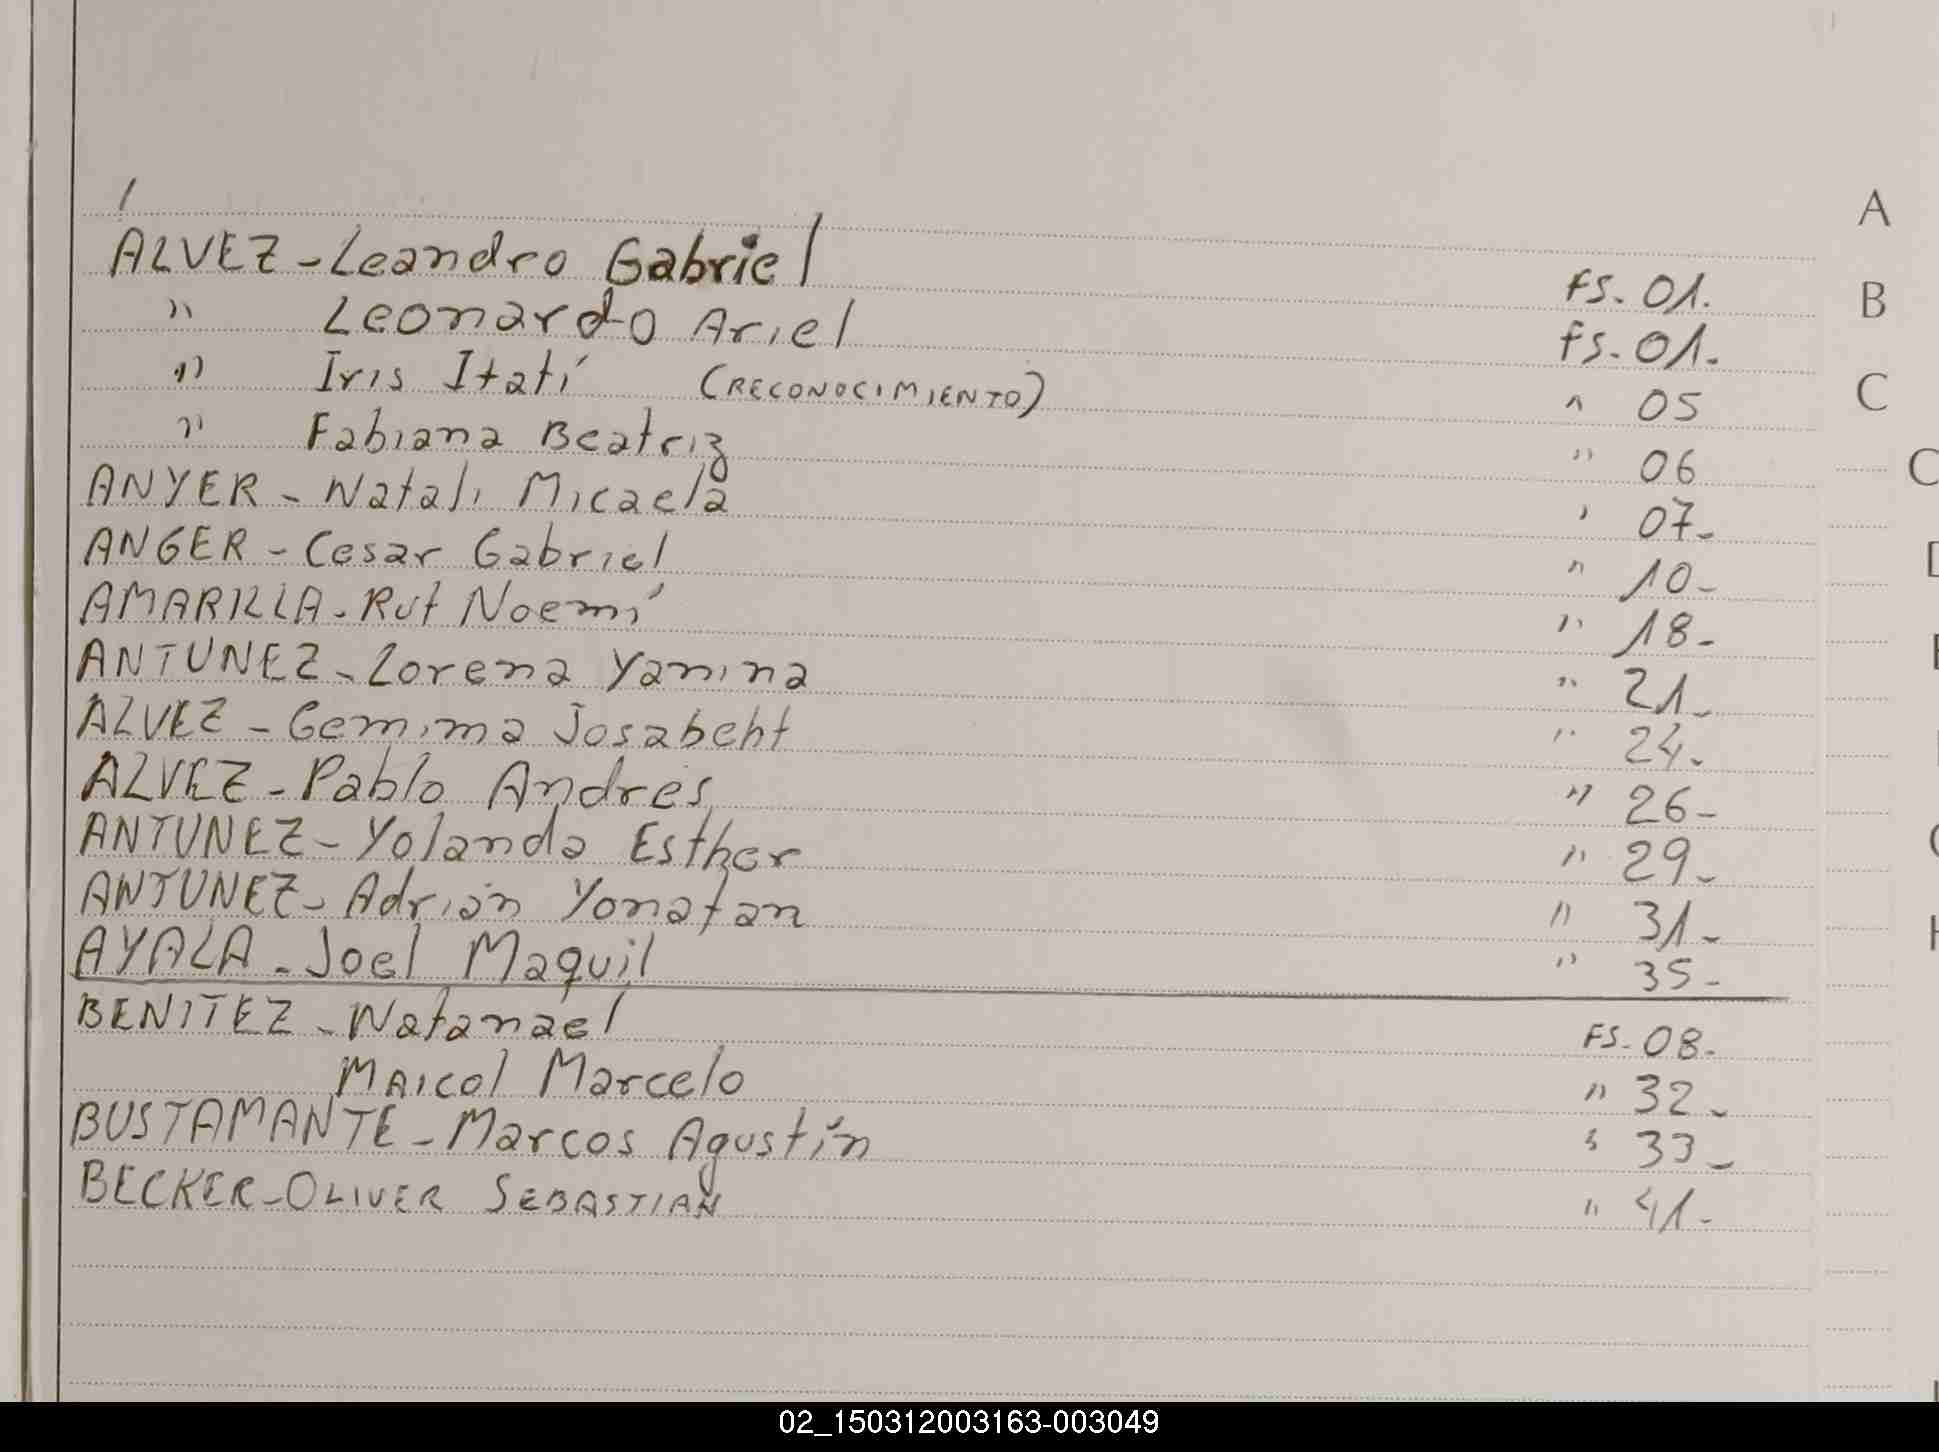 A
ALVEZ - Leandro Gabriel FS. 01.
B
" Leonardo Ariel FS. 01.
" Iris Itatí (RECONOCIMIENTO) " 05
C
" Fabiana Beatriz " 06
ANYER - Natali Micaela " 07-
ANGER - Cesar Gabriel " 10-
AMARILLA - Rut Noemí " 18-
ANTUNEZ - Lorena Yanina " 21-
ALVEZ - Gemima Josabeht " 24-
ALVEZ - Pablo Andres " 26-
ANTUNEZ - Yolanda Esther " 29-
ANTUNEZ - Adrián Yonatan " 31-
AYALA - Joel Maquil " 35-
BENITEZ - Natanael FS. 08-
Maicol Marcelo " 32-
BUSTAMANTE - Marcos Agustín " 33-
BECKER - OLIVER SEBASTIAN " 41-
02_150312003163-003049